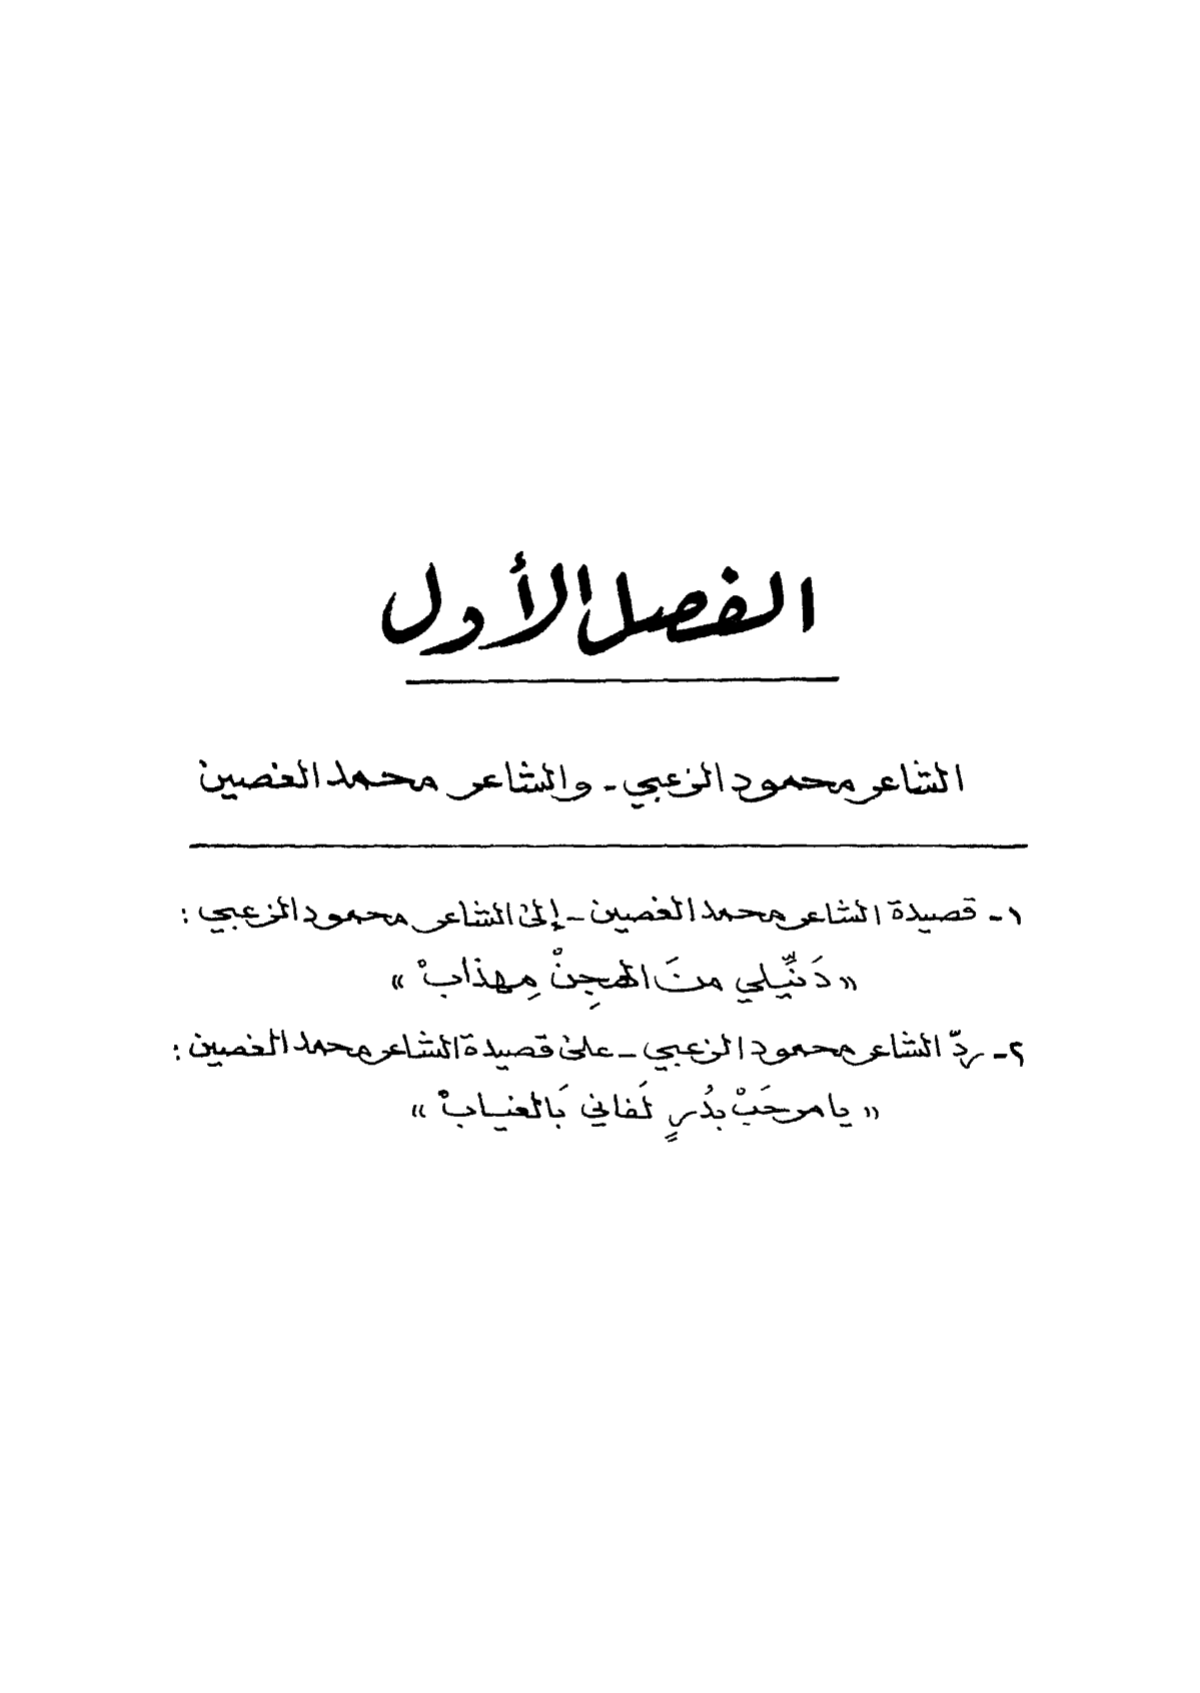 الفصل الأول
الشاعر محمود الزعبي - والشاعر محمد الغصين
١- قصيدة الشاعر محمد الغصين - إلى الشاعر محمود الزعبي :
« دَنِّيلي منَ الهجِنْ مِهذابْ »
٢- ردّ الشاعر محمود الزعبي - على قصيدة الشاعر محمد الغصين :
« يا مرحَبْ بدُرٍ لَفاني بَالغيابْ »